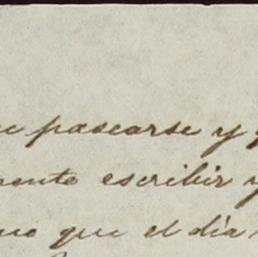 pasearse y
mente escribir y
que el día